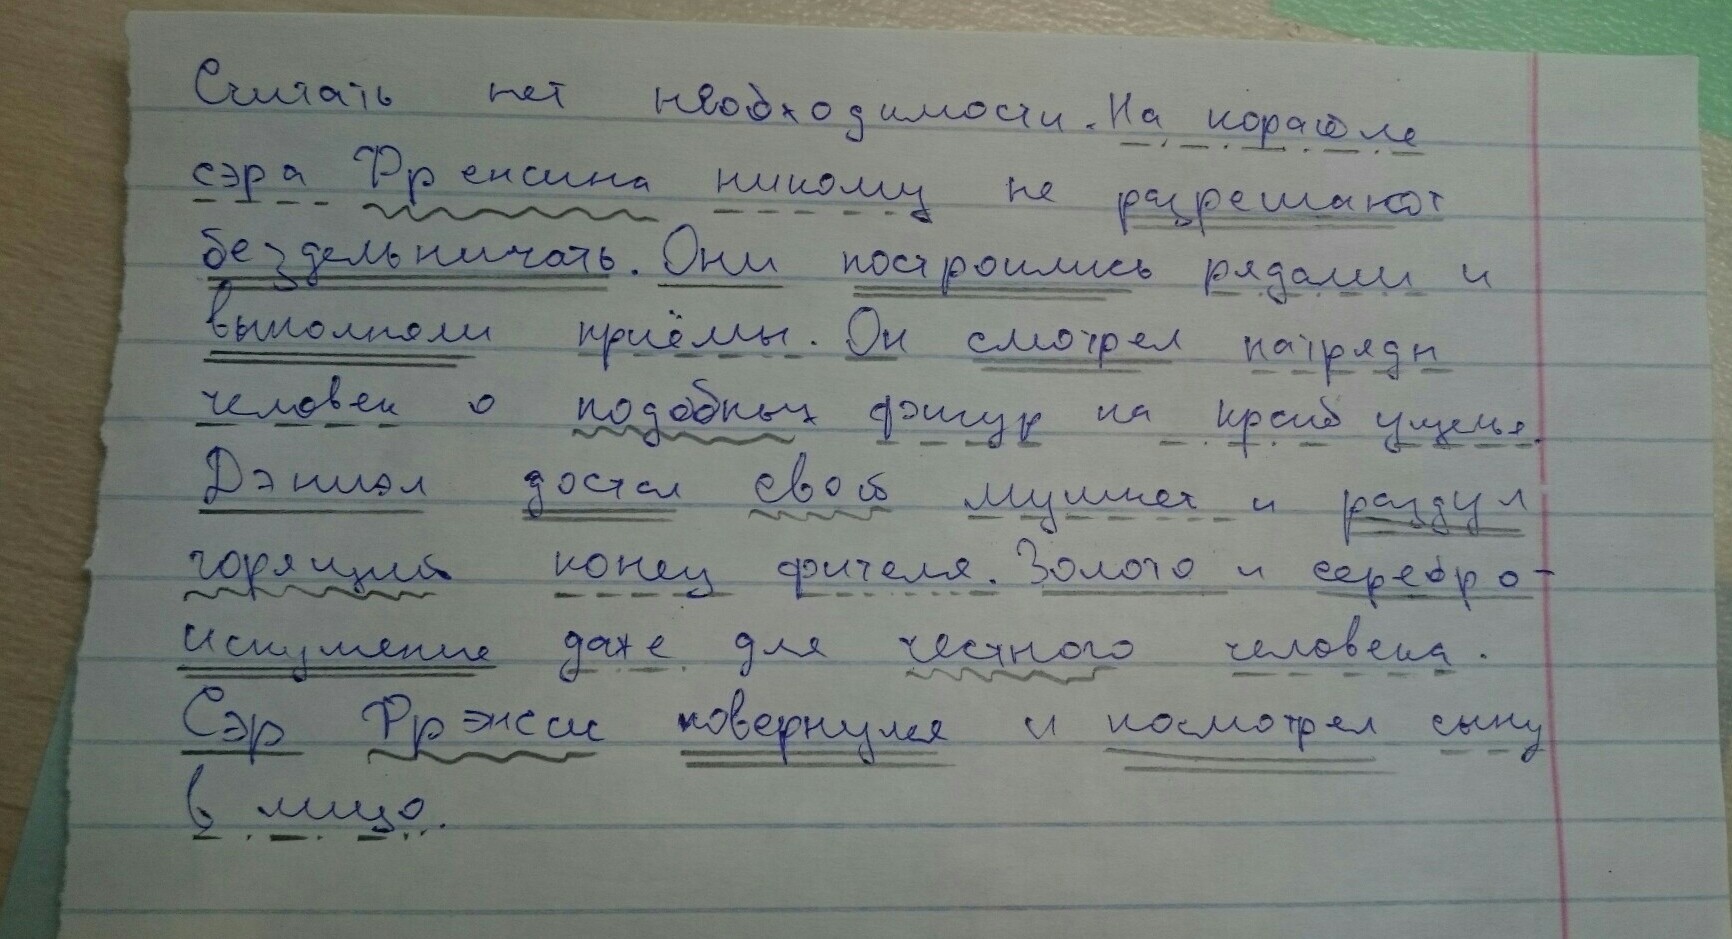 Считать нет необходимости. На корабле
сэра Френсина никому не разрешают
бездельничать. Они построились рядами и
выполняли приёмы. Он смотрел на
человек о подобных фигур на краю ущелья.
Дэниэл достал свой мушкет и раздул
горящий конец фителя. Золото и серебро -
искушение даже для честного человека.
Сэр Фрэнсис повернулся и посмотрел сыну
в лицо.